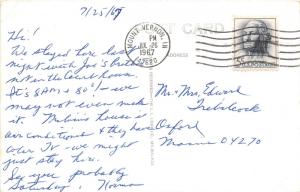 7/25/67
POST CARD
Hi!
We stayed here last
night with Joe's brother
not in the Court house.
It's 8AM + 80° - we
may not even make
it. Melvin's house is
air conditioned & they have
color TV - we might
just stay here.
See you probably
Saturday. Norman
MOUNT VERNON, IN
PM
JUL 26
1967
47620
Mr + Mrs. Edward
Trebilcock
Oxford
Maine 04270